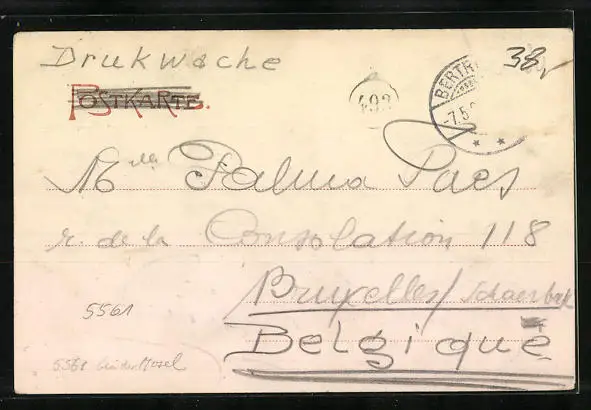 Drukwache
POSTKARTE.
493
38,-
BERTR
-7.5.
Mlle Palma Paes
r. de la Consolation 118
Bruxelles/ Schaerbek
5561
Belgique
5561 Mosel